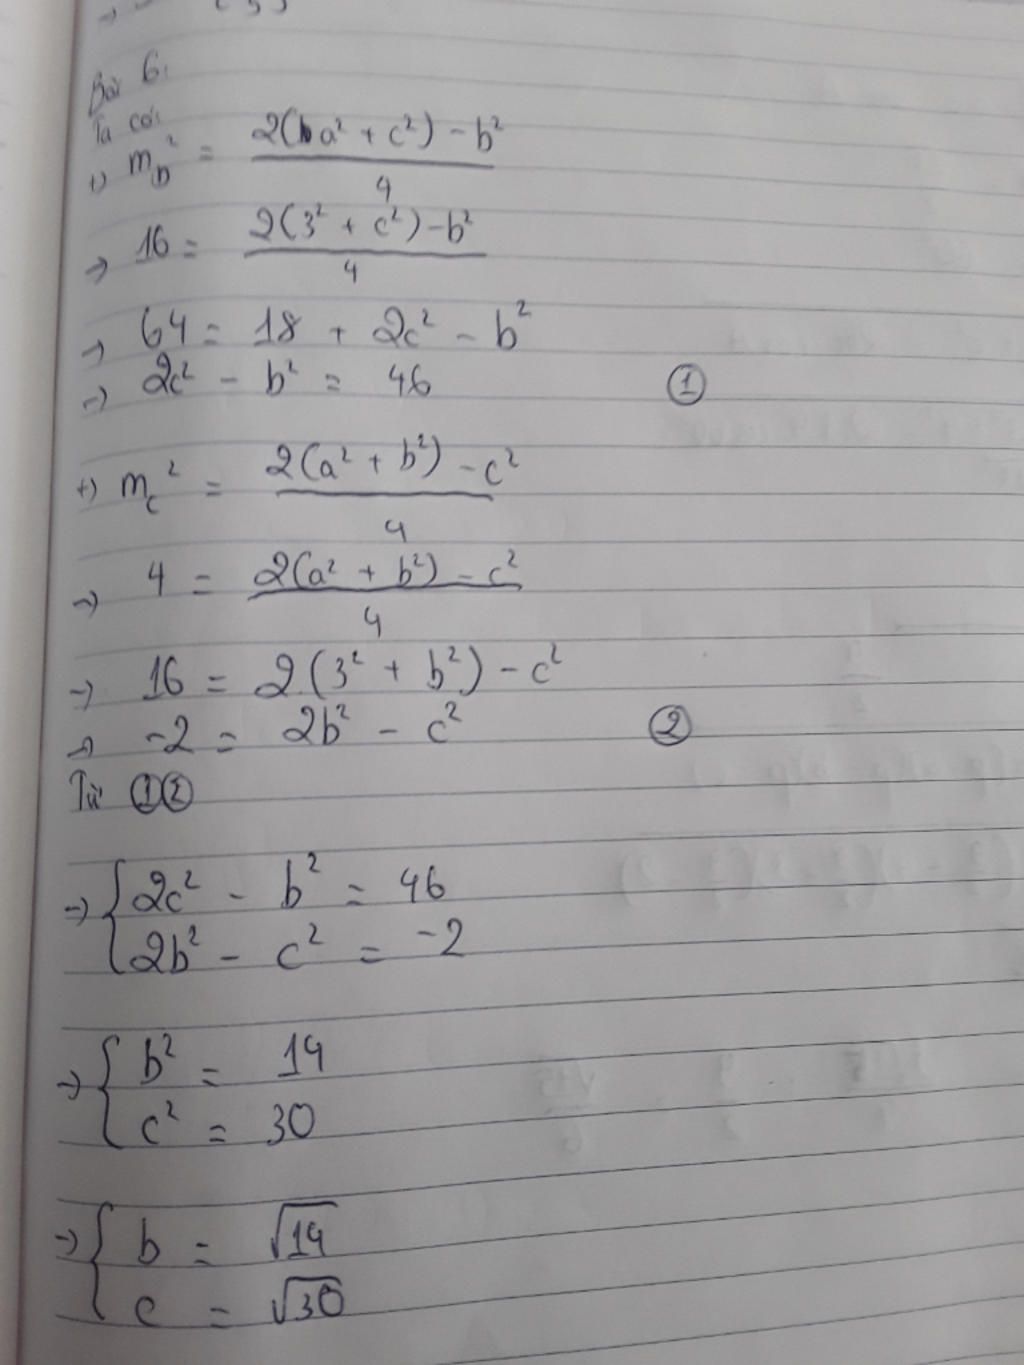 Bài 6:
Ta có:
+) m_b² = (2(a² + c²) - b²)/4
→ 16 = (2(3² + c²) - b²)/4
→ 64 = 18 + 2c² - b²
→ 2c² - b² = 46 ①
+) m_c² = (2(a² + b²) - c²)/4
→ 4 = (2(a² + b²) - c²)/4
→ 16 = 2(3² + b²) - c²
→ -2 = 2b² - c² ②
Từ ①②
→ { 2c² - b² = 46
2b² - c² = -2
→ { b² = 14
c² = 30
→ { b = √14
c = √30